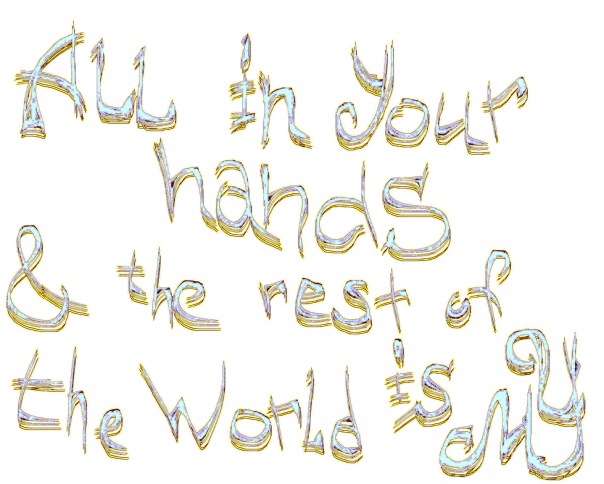 All in Your
hands
& the rest of
the World is MY